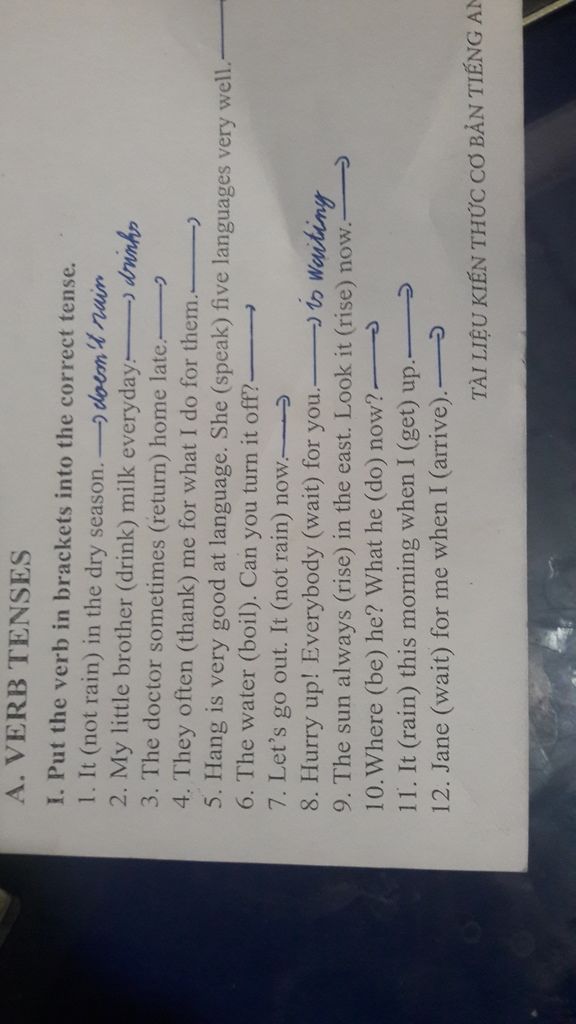 A. VERB TENSES
I. Put the verb in brackets into the correct tense.
1. It (not rain) in the dry season. doesn't rain
2. My little brother (drink) milk everyday. drinks
3. The doctor sometimes (return) home late.
4. They often (thank) me for what I do for them.
5. Hang is very good at language. She (speak) five languages very well.
6. The water (boil). Can you turn it off?
7. Let's go out. It (not rain) now.
8. Hurry up! Everybody (wait) for you. is waiting
9. The sun always (rise) in the east. Look it (rise) now.
10.Where (be) he? What he (do) now?
11. It (rain) this morning when I (get) up.
12. Jane (wait) for me when I (arrive).
TÀI LIỆU KIẾN THỨC CƠ BẢN TIẾNG